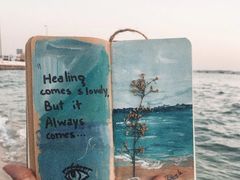 Healing
comes slowly,
But it
Always
comes...